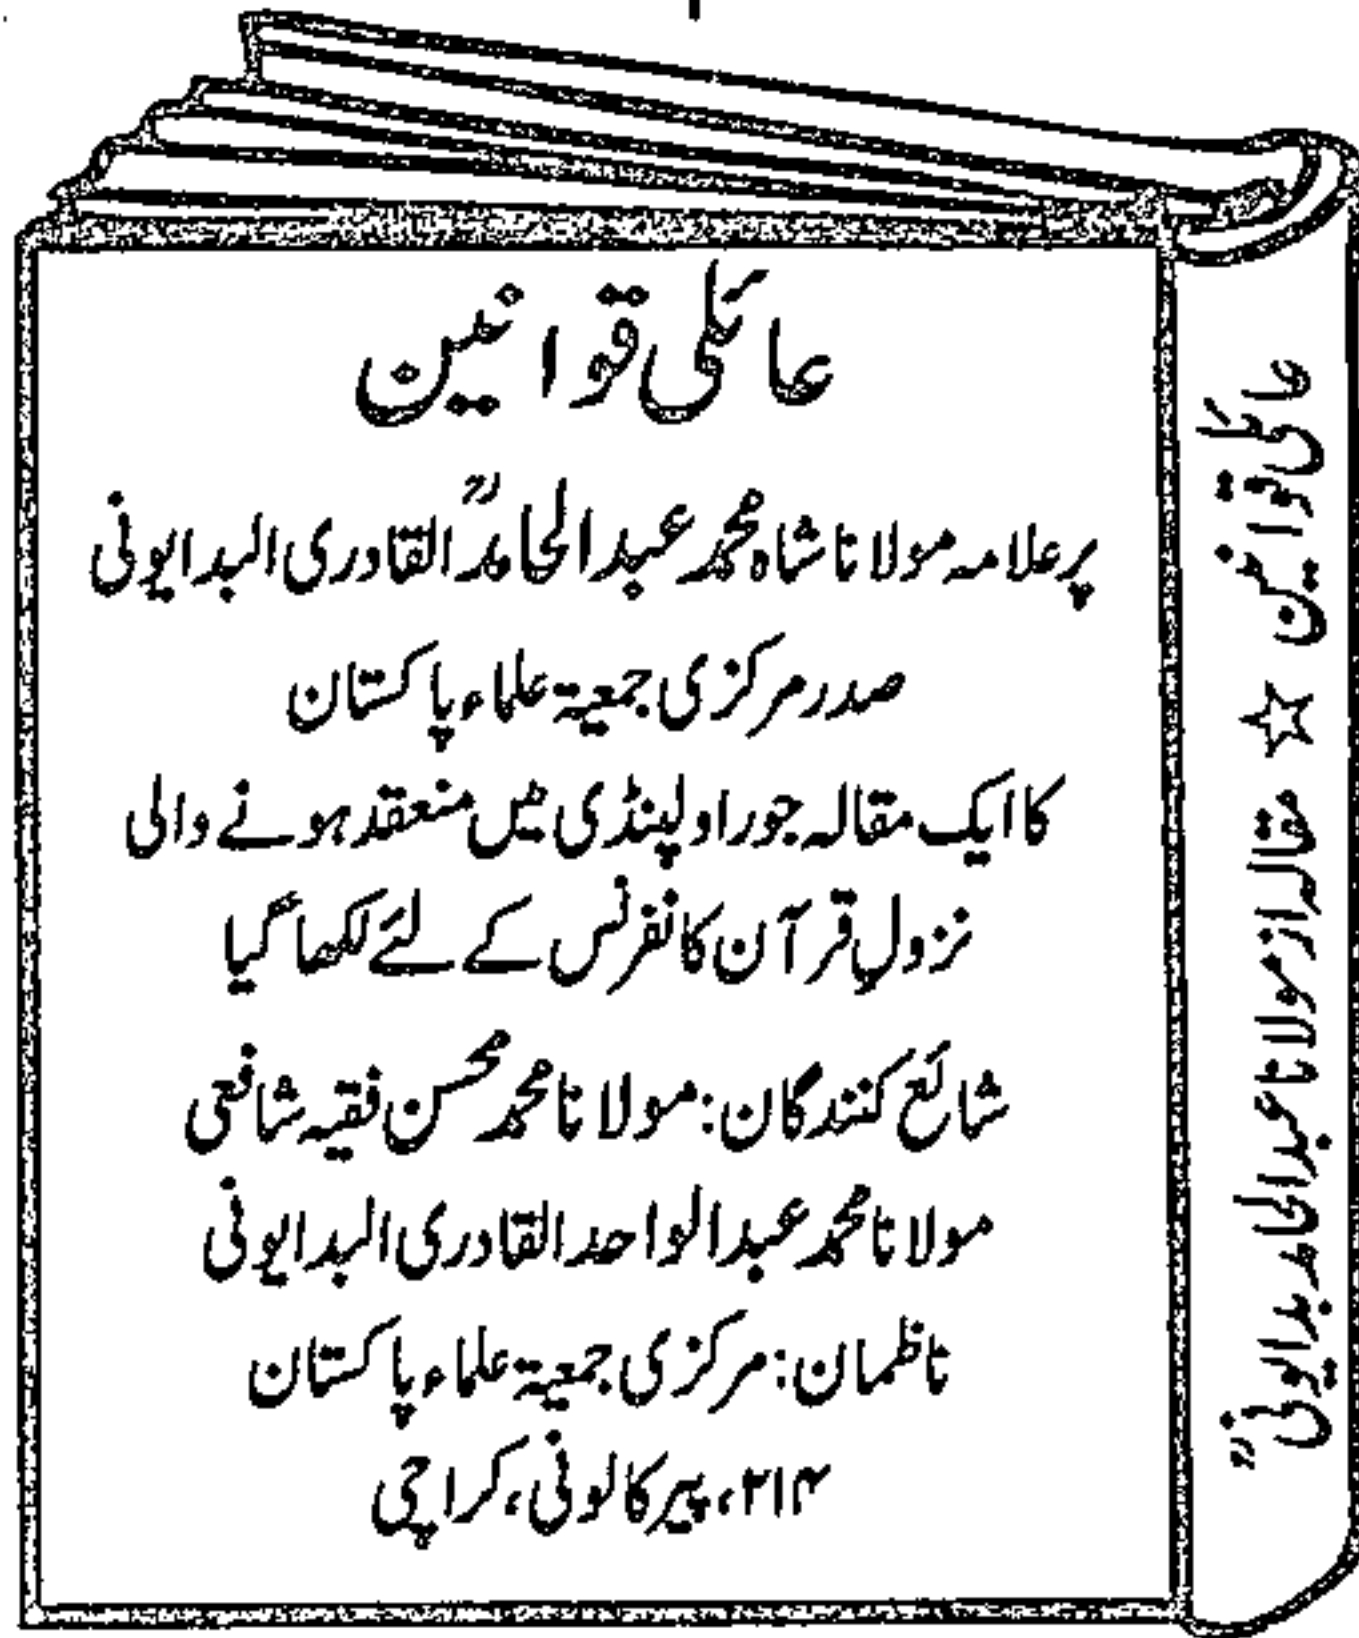 عائلی قوانین
پر علامہ مولانا شاہ محمد عبدالحامدؒ القادری البدایونی
صدر مرکزی جمعیۃ علماء پاکستان
کا ایک مقالہ جو راولپنڈی میں منعقد ہونے والی
نزولِ قرآن کانفرنس کے لئے لکھا گیا
شائع کنندگان: مولانا محمد محسن فقیہ شافعی
مولانا محمد عبدالواحد القادری البدایونی
ناظمان: مرکزی جمعیۃ علماء پاکستان
۲۱۴، پیر کالونی، کراچی
عائلی قوانین ☆ مقالہ از مولانا عبدالحامد بدایونیؒ